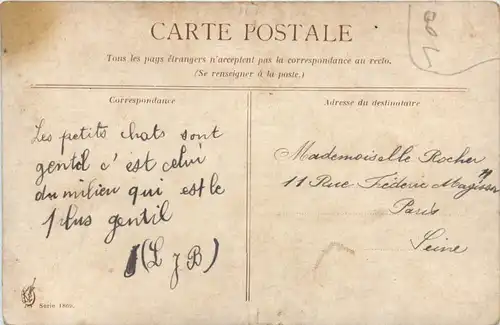 CARTE POSTALE
Tous les pays étrangers n'acceptent pas la correspondance au recto.
(Se renseigner à la poste.)
Correspondance
Les petits chats sont
gentil c'est celui
du milieu qui est le
plus gentil
(L J B)
Adresse du destinataire
Mademoiselle Rocher
11 Rue Féderic
Paris
Seine
Série